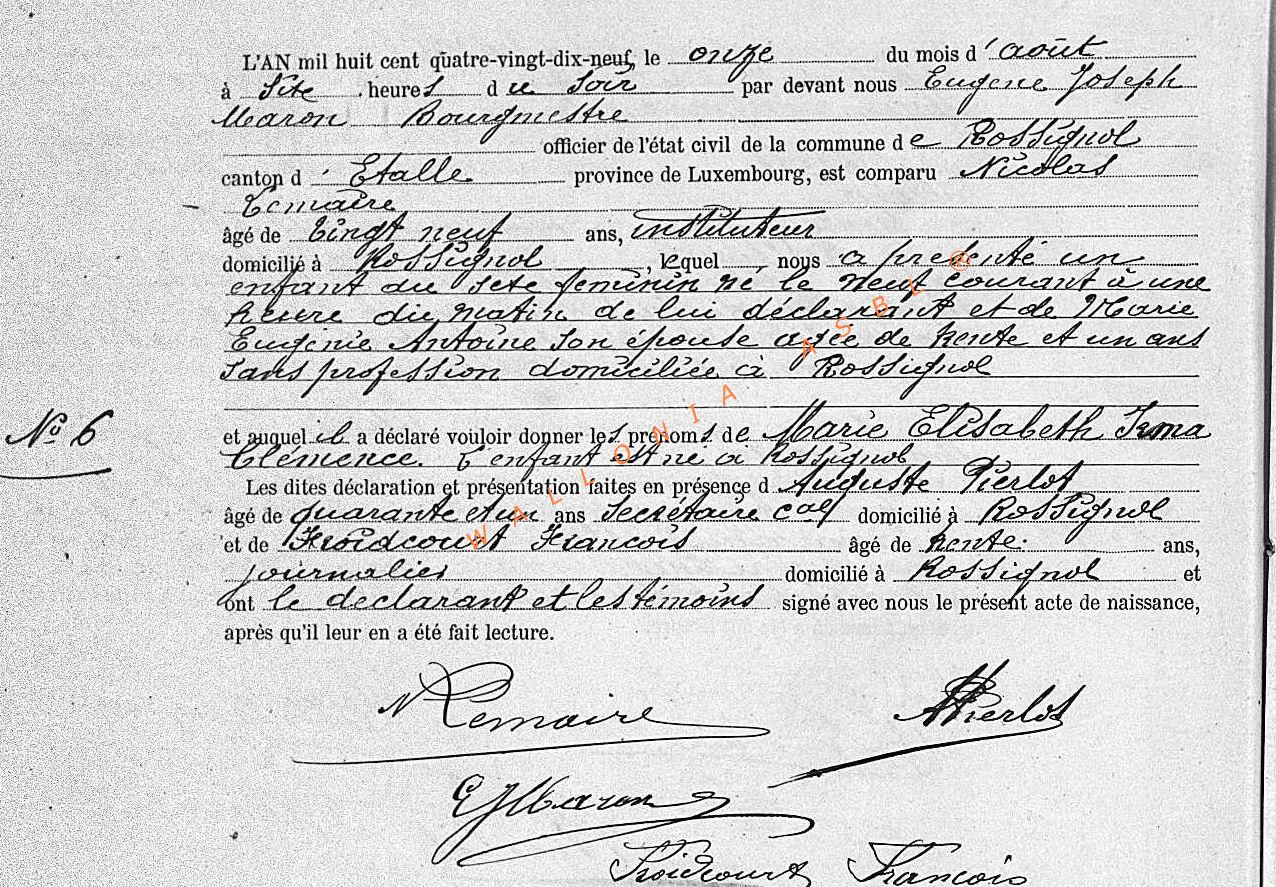 L'AN mil huit cent quatre-vingt-dix-neuf, le onze du mois d'août
à Six heures du soir par devant nous Eugène Joseph
Maron Bourgmestre
officier de l'état civil de la commune de Rossignol
canton d'Etalle province de Luxembourg, est comparu Nicolas
Lemaire
âgé de Vingt neuf ans, instituteur
domicilié à Rossignol, lequel nous a presenté un
enfant du sexe feminin né le neuf courant à une
heure du matin de lui déclarant et de Marie
Eugénie Antoine son épouse agée de trente et un ans
sans profession domiciliée à Rossignol
No 6
et auquel il a déclaré vouloir donner les prénoms de Marie Elisabeth Irma
Clémence. L'enfant est né à Rossignol
Les dites déclaration et présentation faites en présence d Auguste Pierlot
âgé de quarante et un ans Secrétaire cal domicilié à Rossignol
et de Froidcourt François âgé de trente ans,
journalier domicilié à Rossignol et
ont le declarant et les témoins signé avec nous le présent acte de naissance,
après qu'il leur en a été fait lecture.
N Lemaire APierlot
EJMaron
Froidcourt François
WALLONIA ASBL ®